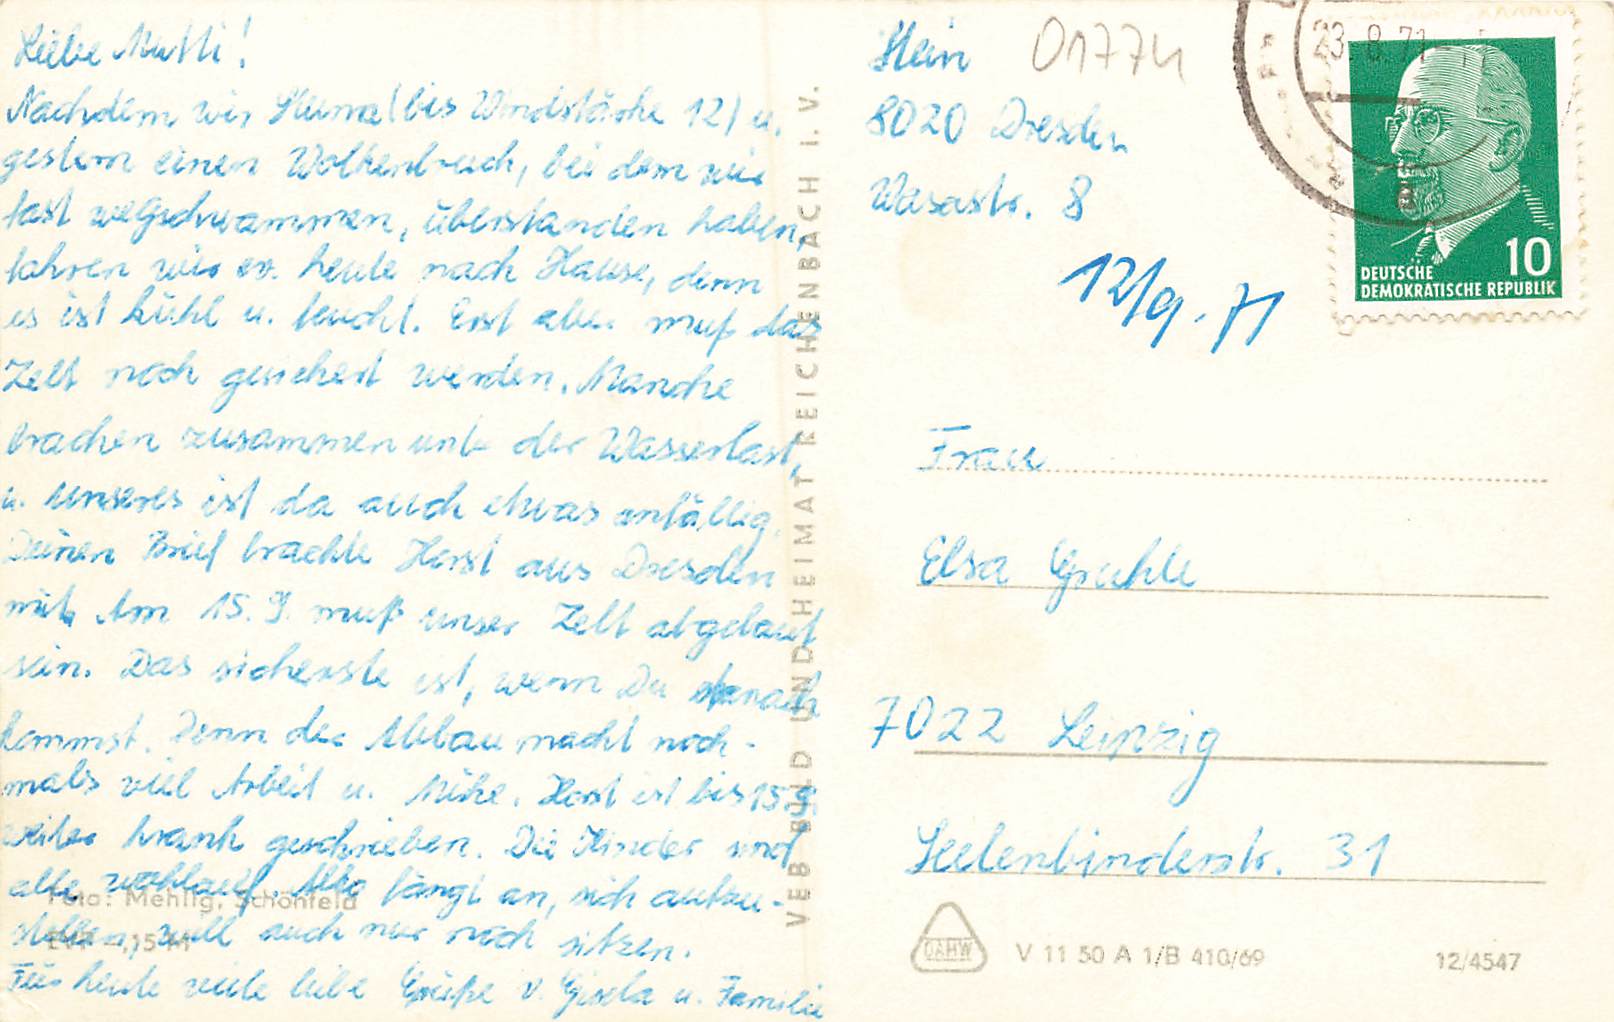 Liebe Mutti!
Nachdem wir Sturm (bis Windstärke 12) u.
gestern einen Wolkenbruch, bei dem wir
fast wegschwammen, überstanden haben,
fahren wir ev. heute nach Hause, denn
es ist kühl u. feucht. Erst aber muß das
Zelt noch gesichert werden. Manche
brachen zusammen unter der Wasserlast,
u. unseres ist da auch etwas anfällig.
Deinen Brief brachte Horst aus Dresden
mit. Am 15.9. muß unser Zelt abgebaut
sein. Das sicherste ist, wenn Du danach
kommst. Denn der Abbau macht noch-
mals viel Arbeit u. Mühe. Horst ist bis 15.9.
weiter krank geschrieben. Die Kinder sind
alle wohlauf. fängt an, sich aufzu-
stellen, will auch nur noch sitzen.
Für heute viele liebe Grüße v. Gisela u. Familie
Foto: Mehlig, Schönfeld
EVP -,15 M
VEB BILD UND HEIMAT REICHENBACH I. V.
Hein
01774
8020 Dresden
Wasastr. 8
12/9.71
23.8.71
10
DEUTSCHE
DEMOKRATISCHE REPUBLIK
Frau
Elsa Gruhle
7022 Leipzig
Seelenbinderstr. 31
V 11 50 A 1/B 410/69
12/4547